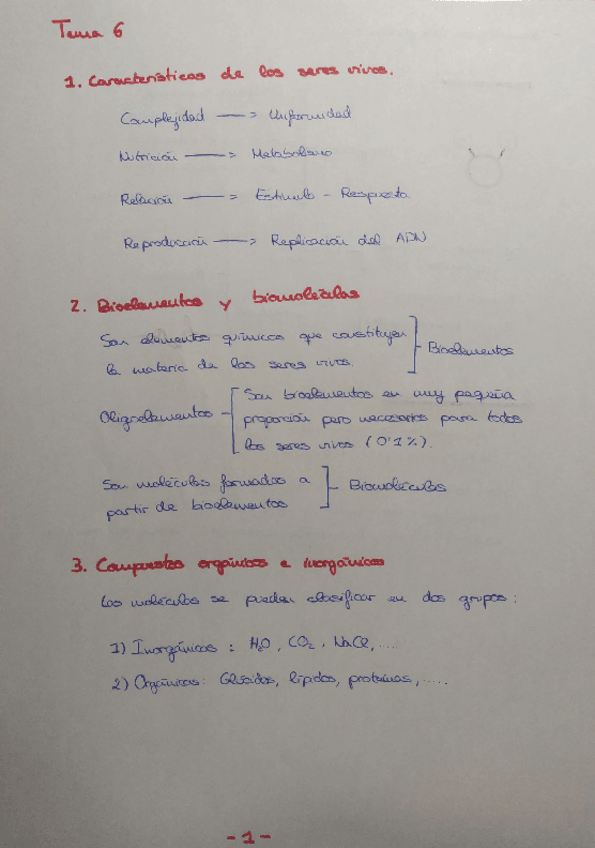 Tema 6
1. Características de los seres vivos.
Complejidad —> Uniformidad
Nutrición —> Metabolismo
Relación —> Estímulo - Respuesta
Reproducción —> Replicación del ADN
2. Bioelementos y biomoléculas
Son elementos químicos que constituyen
la materia de los seres vivos.
Bioelementos
Oligoelementos
Son bioelementos en muy pequeña
proporción pero necesarios para todos
los seres vivos (0'1%).
Son moléculas formadas a
partir de bioelementos
Biomoléculas
3. Compuestos orgánicos e inorgánicos
Las moléculas se pueden clasificar en dos grupos:
1) Inorgánicas: H₂O, CO₂, NaCl, ....
2) Orgánicas: Glúcidos, lípidos, proteínas, .....
- 1 -